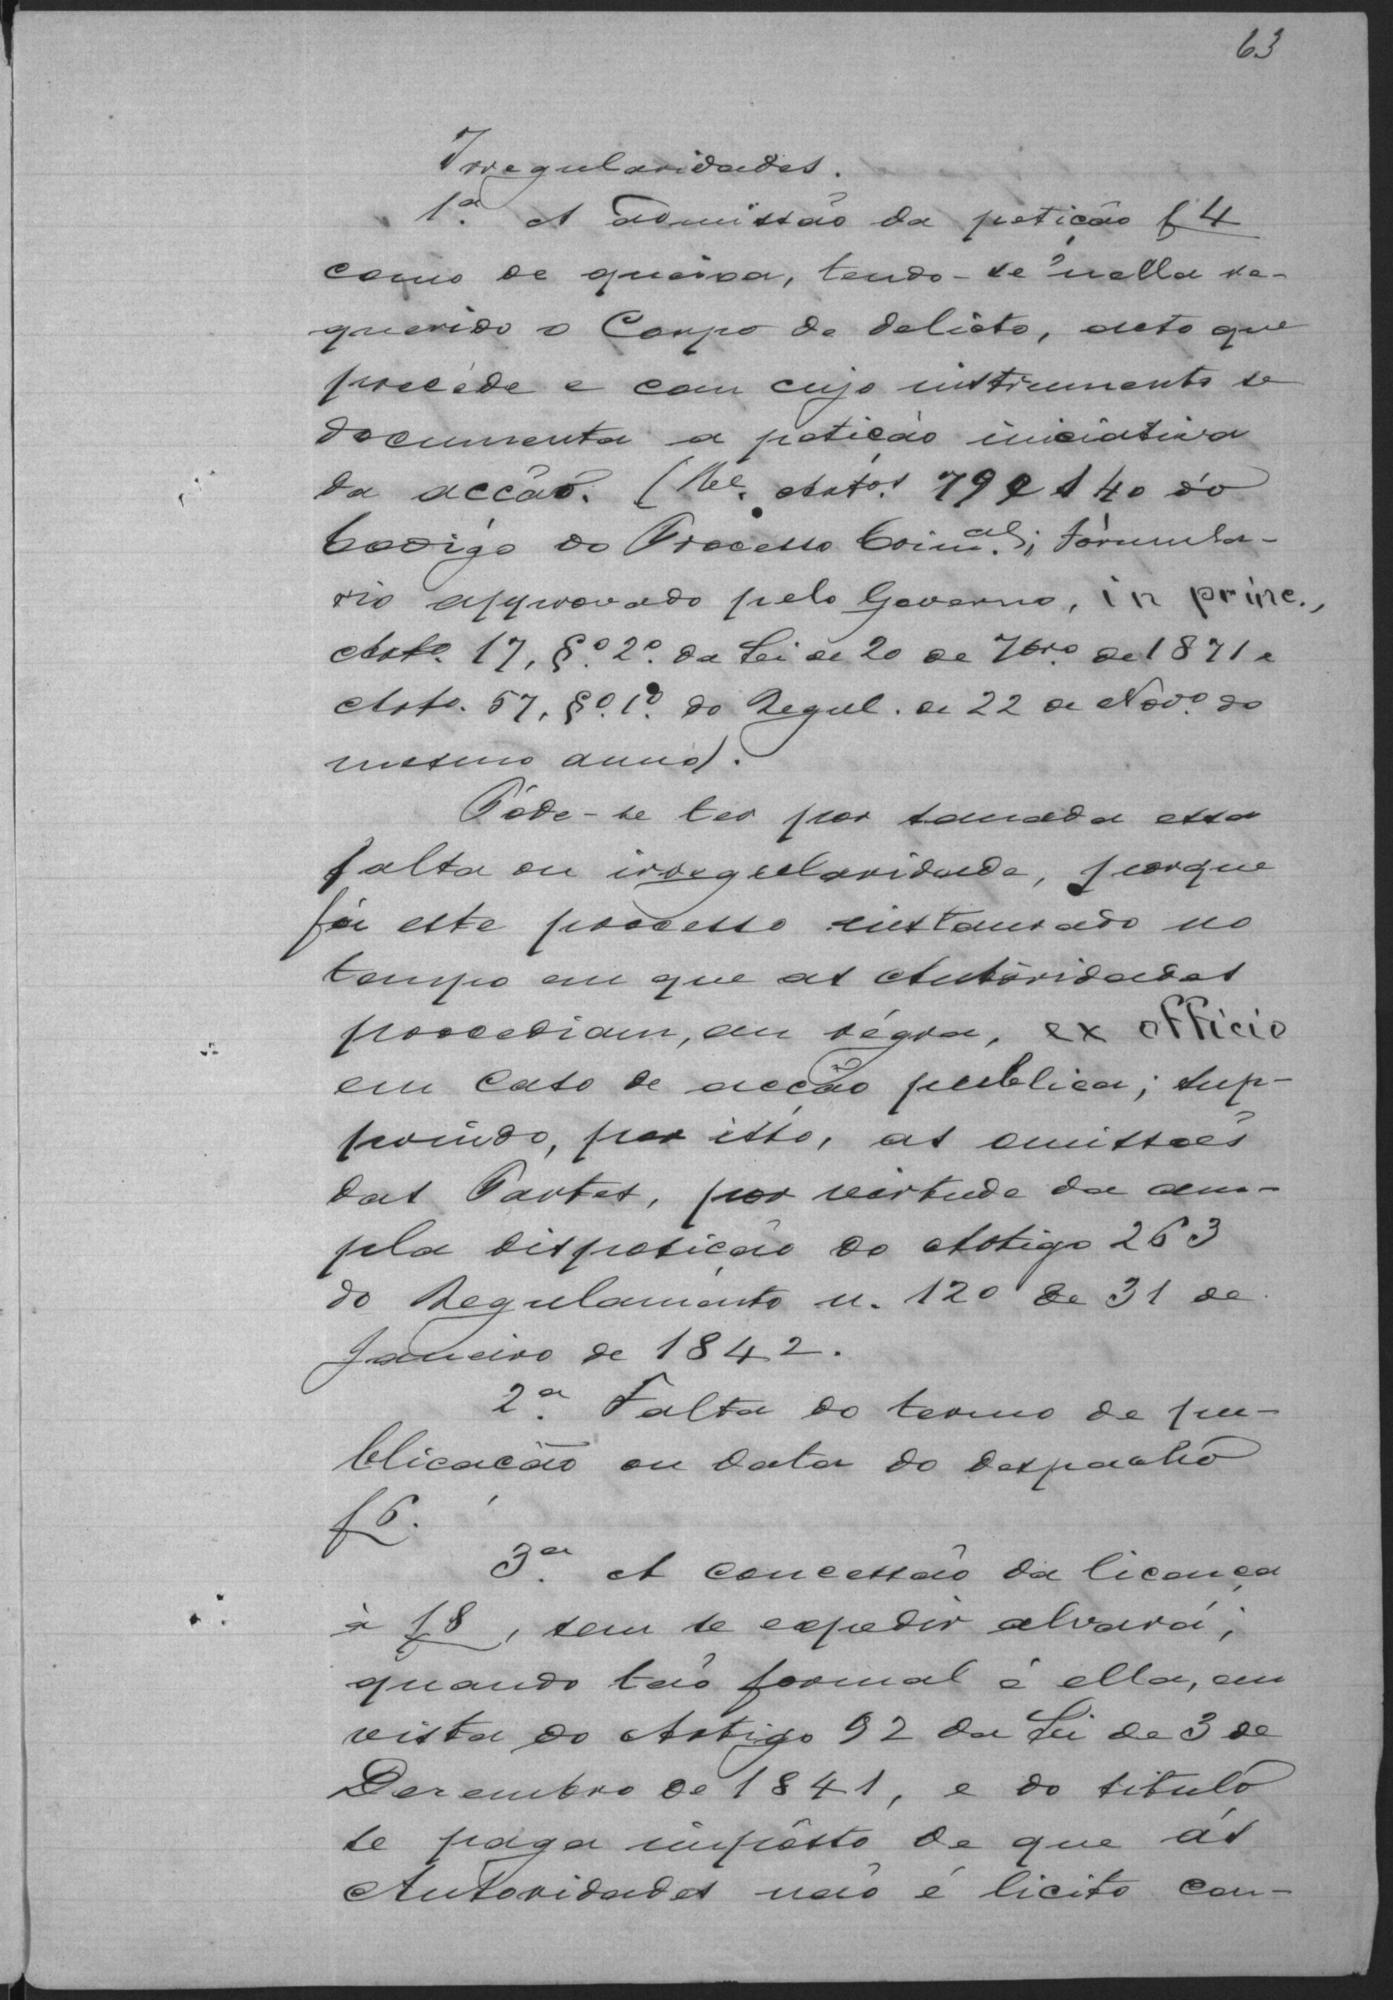 63
Irregularidades.
1ª. A admissão da petição f 4
como de queixa, tendo-se n'ella re-
querido o Corpo de delicto, acto que
precéde e com cujo instrumento se
documenta a petição iniciativa
da acção. ( Artos. 79 e 140 do
Codigo do Processo Crimal.; Fórmula-
rio approvado pelo Governo, in princ.,
Arto. 17, §.º 2º. da Lei de 20 de 7bro. de 1871 e
Arto. 57, §º. 1º. do Regul. de 22 de Novº. do
mesmo anno).
Póde-se ter por sanada essa
falta ou irregularidade, porque
foi este processo instaurado no
tempo em que as Autoridades
procediam, em régra, ex officio
em caso de acção publica; sup-
prindo, por isso, as omissões
das Partes, por virtude da am-
pla disposição do Artigo 263
do Regulamento n. 120 de 31 de
Janeiro de 1842.
2ª. Falta do termo de pu-
blicação ou data do despacho
f 6.
3ª. A concessão da licença
à f 8, sem se expedir alvará;
quando tão formal é ella, em
vista do Artigo 92 da Lei de 3 de
Dezembro de 1841, e do titulo
se paga impôsto de que ás
Autoridades não é licito con-